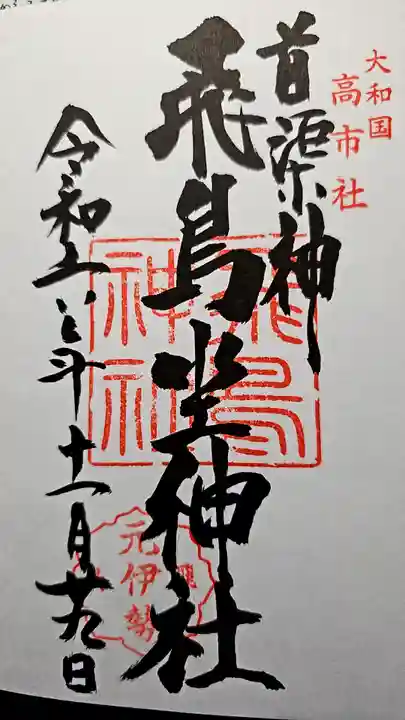 大和国
高市社
首渠神
飛鳥坐神社
令和六年十一月廿九日
飛鳥
神社
元伊勢